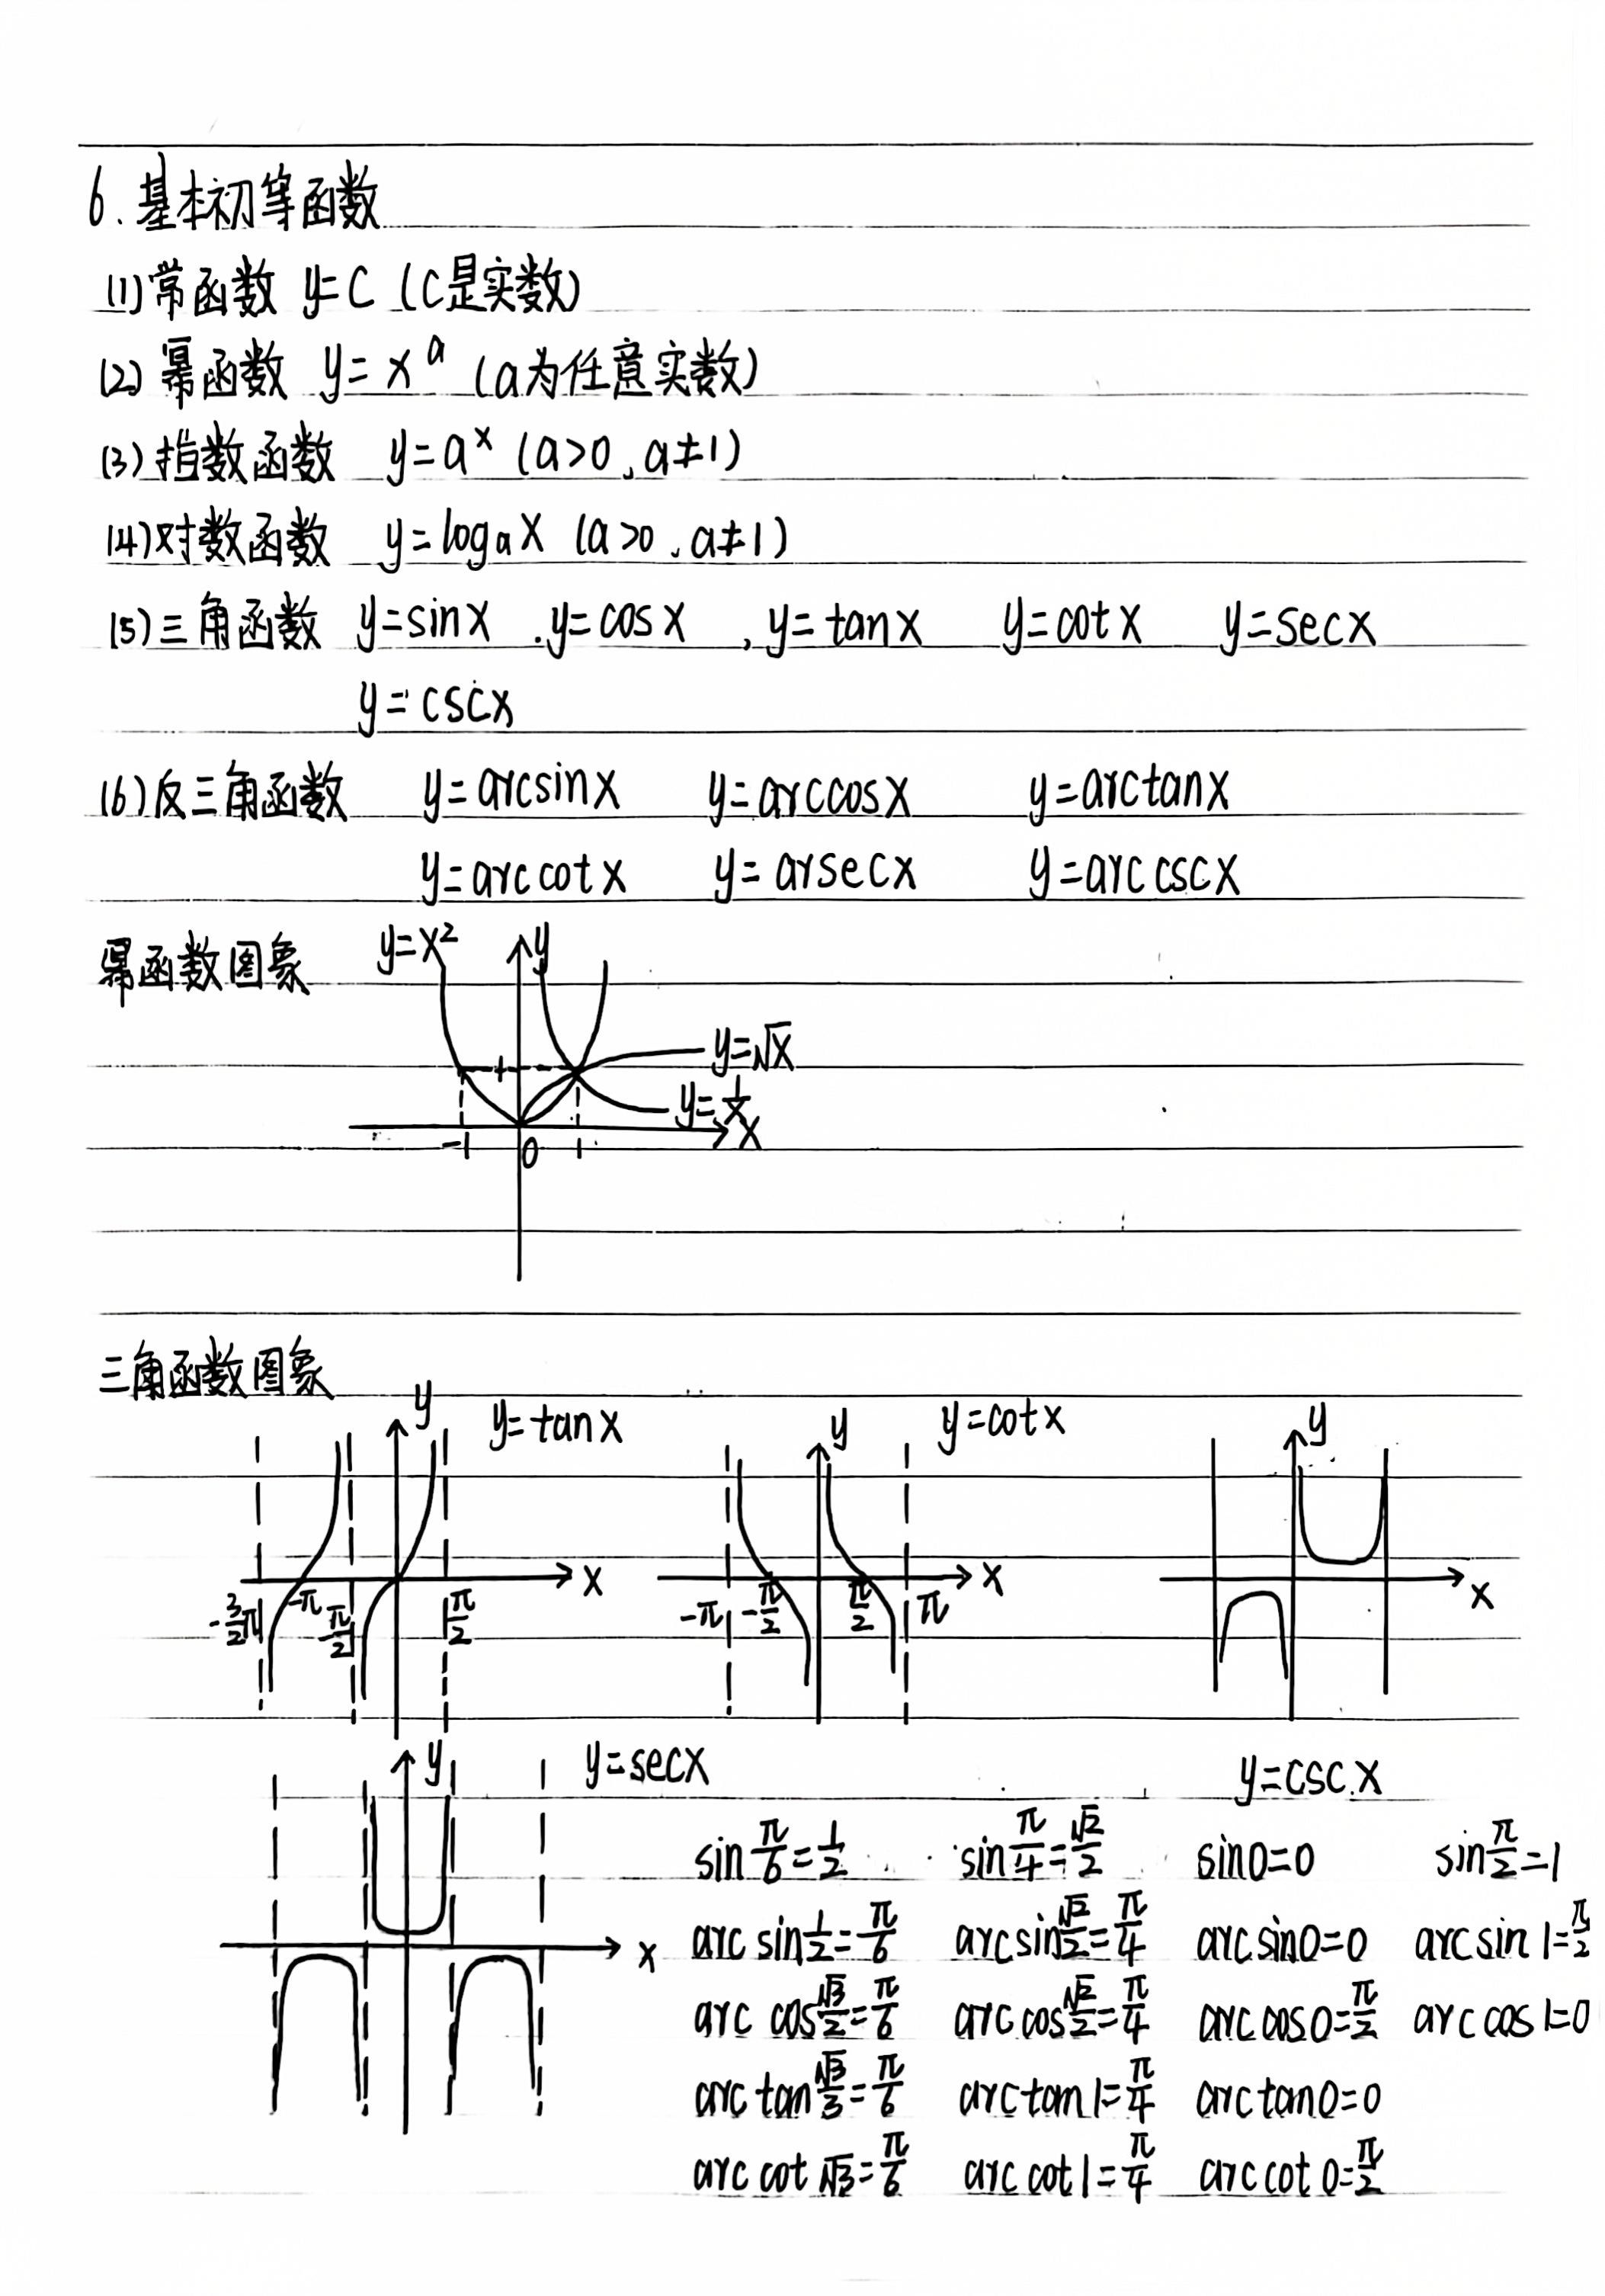 6.基本初等函数
(1)常函数 y=C (C是实数)
(2)幂函数 y=x^a (a为任意实数)
(3)指数函数 y=a^x (a>0、a≠1)
(4)对数函数 y=log_a x (a>0、a≠1)
(5)三角函数 y=sinx .y=cosx , y=tanx y=cotx y=secx
y=cscx
(6)反三角函数 y=arcsinx y=arccosx y=arctanx
y=arccotx y=arsecx y=arccscx
幂函数图象 y=x² y
y=√x
1
y=1/x
x
-1 0 1
三角函数图象
y y=tanx y y=cotx y
x x x
-3/2π -π -π/2 π/2 -π -π/2 π/2 π
y y=secx y=cscx
x
sinπ/6=1/2 sinπ/4=√2/2 sin0=0 sinπ/2=1
arcsin1/2=π/6 arcsin√2/2=π/4 arcsin0=0 arcsin1=π/2
arccos√3/2=π/6 arccos√2/2=π/4 arccos0=π/2 arccos1=0
arctan√3/3=π/6 arctan1=π/4 arctan0=0
arccot√3=π/6 arccot1=π/4 arccot0=π/2